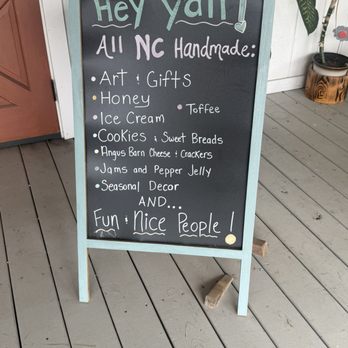 Hey Yall!
All NC Handmade:
• Art + Gifts
• Honey
• Toffee
• Ice Cream
• Cookies + Sweet Breads
• Angus Barn Cheese + Crackers
• Jams and Pepper Jelly
• Seasonal Decor
AND...
Fun + Nice People!